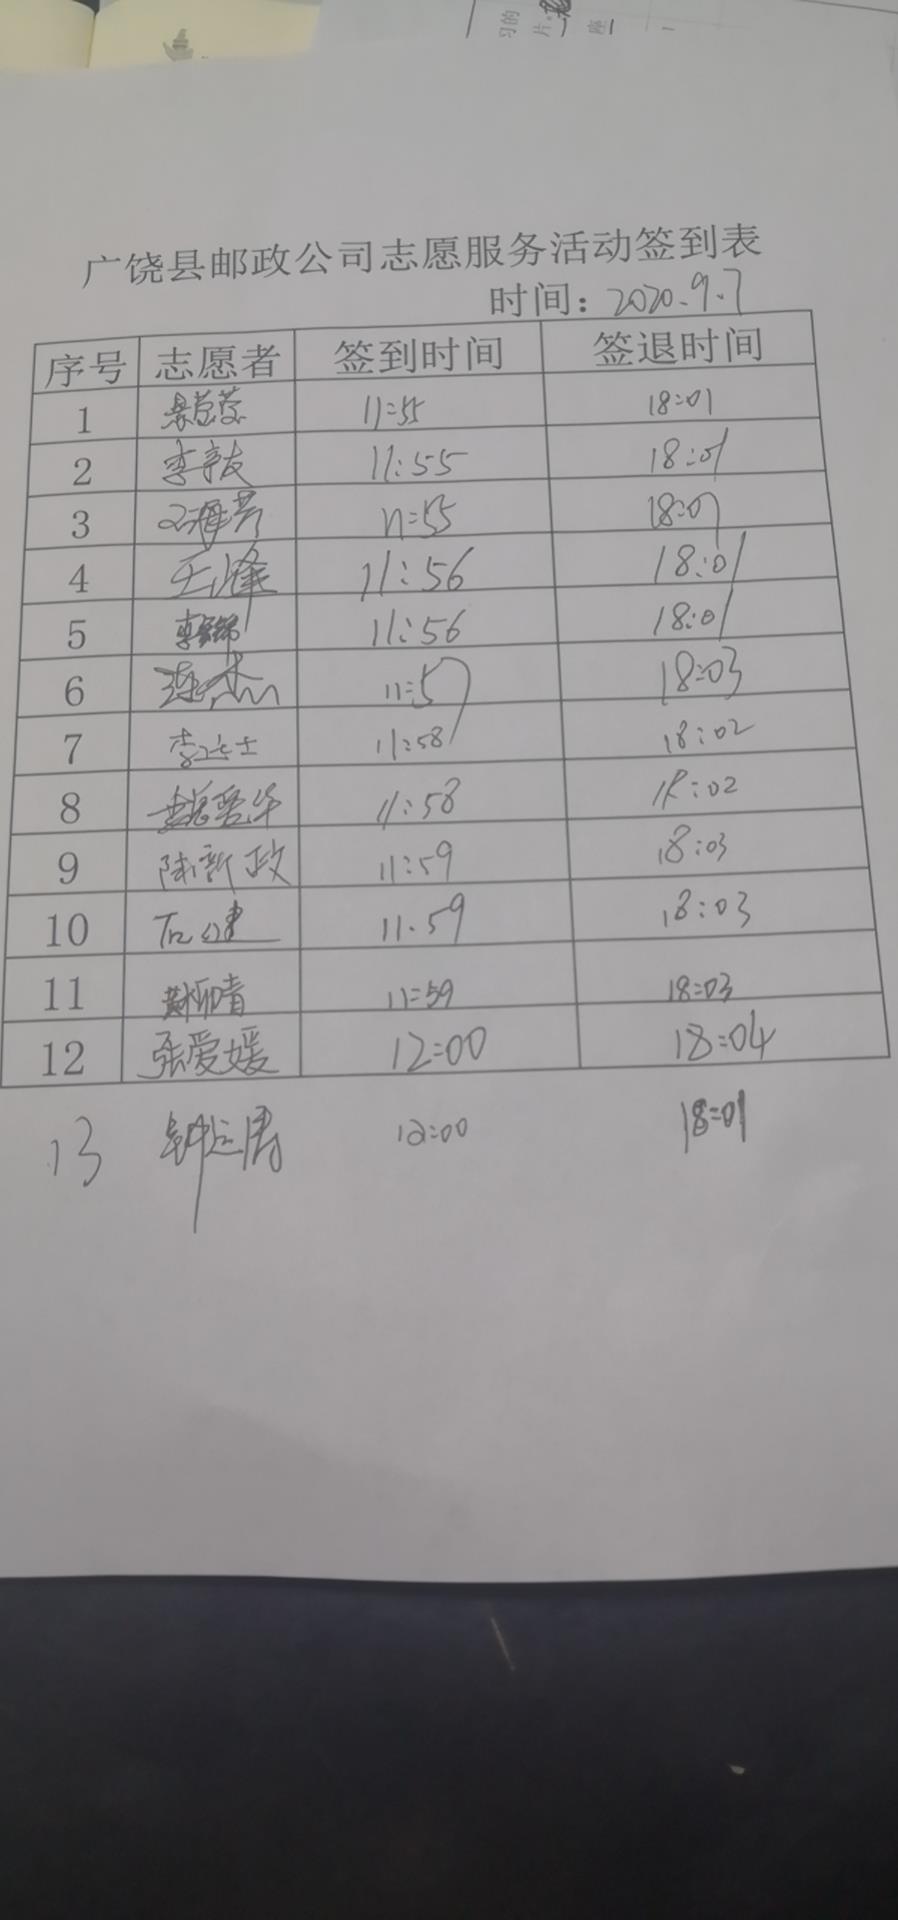 习的
片。
座
广饶县邮政公司志愿服务活动签到表
时间：2020.9.7
序号 志愿者 签到时间 签退时间
1 11:55 18:01
2 李 友 11:55 18:01
3 11:55 18:01
4 王峰 11:56 18:01
5 李 11:56 18:01
6 连杰 11:57 18:03
7 李 士 11:58 18:02
8 11:58 18:02
9 陈新政 11:59 18:03
10 石健 11.59 18:03
11 黄柳青 11:59 18:03
12 张爱媛 12:00 18:04
13 钟 12:00 18:01